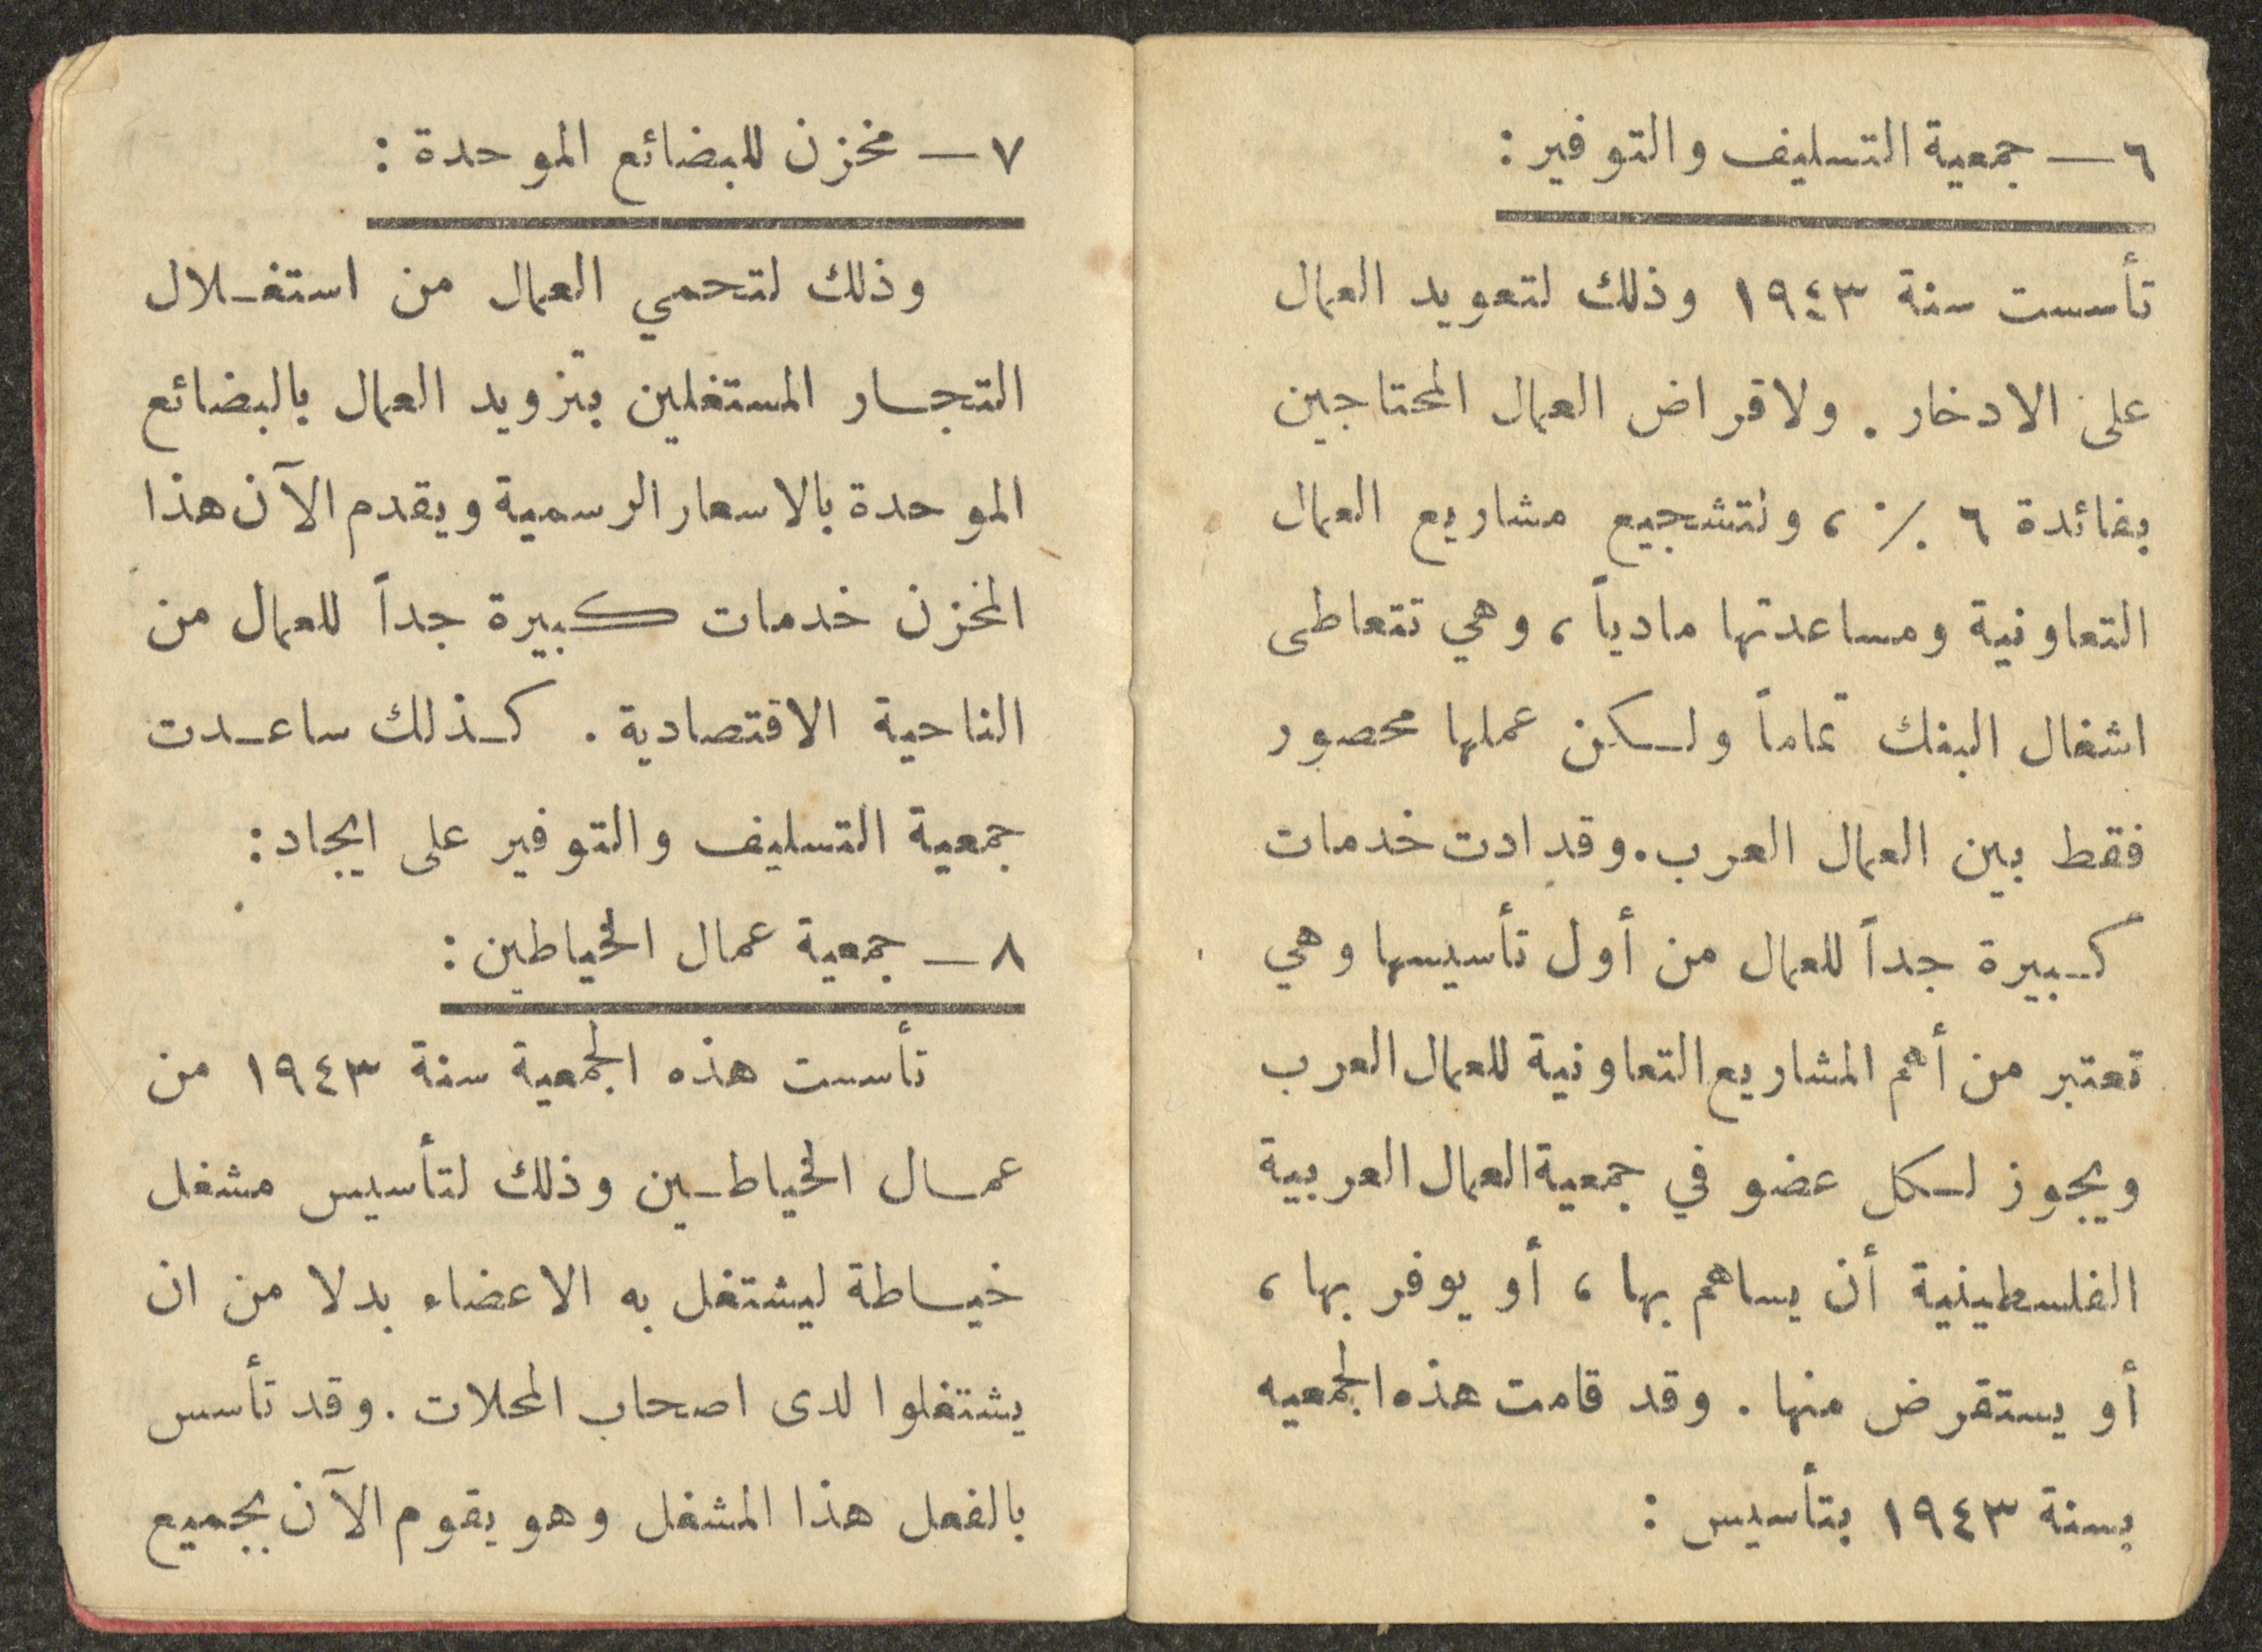 ٦ — جمعية التسليف والتوفير :
تأسست سنة ١٩٤٣ وذلك لتعويد العمال
على الادخار . ولاقراض العمال المحتاجين
بفائدة ٦ ٪ ، ولتشجيع مشاريع العمال
التعاونية ومساعدتها مادياً ، وهي تتعاطى
اشغال البنك تماماً ولكن عملها محصور
فقط بين العمال العرب . وقد ادت خدمات
كبيرة جداً للعمال من أول تأسيسها وهي
تعتبر من أهم المشاريع التعاونية للعمال العرب
ويجوز لكل عضو في جمعية العمال العربية
الفلسطينية أن يساهم بها ، أو يوفر بها ،
أو يستقرض منها . وقد قامت هذه الجمعيه
بسنة ١٩٤٣ بتأسيس :
٧ — مخزن للبضائع الموحدة :
وذلك لتحمي العمال من استغلال
التجار المستغلين بتزويد العمال بالبضائع
الموحدة بالاسعار الرسمية ويقدم الآن هذا
المخزن خدمات كبيرة جداً للعمال من
الناحية الاقتصادية . كذلك ساعدت
جمعية التسليف والتوفير على ايجاد :
٨ — جمعية عمال الخياطين :
تأسست هذه الجمعية سنة ١٩٤٣ من
عمال الخياطين وذلك لتأسيس مشغل
خياطة ليشتغل به الاعضاء بدلا من ان
يشتغلوا لدى اصحاب المحلات . وقد تأسس
بالفعل هذا المشغل وهو يقوم الآن بجميع